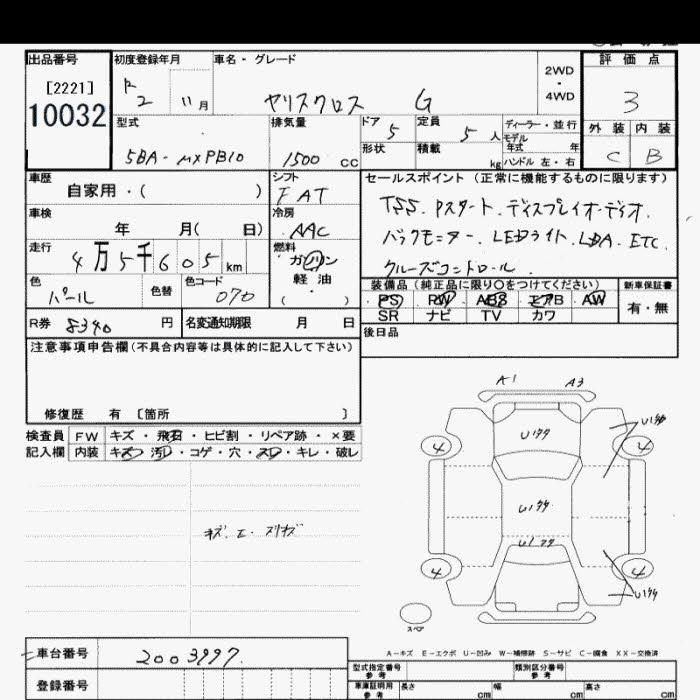 出品番号 初度登録年月 車名・グレード 評価点
[2221] 2WD・4WD
10032 R 2 11月 ヤリスクロス G 3
型式 排気量 ドア 5 定員 5人 ディーラー・並行 外装 内装
モデル年式 年
5BA-MXPB10 1500cc 形状 積載 kg ハンドル 左・右 C B
車歴 シフト セールスポイント(正常に機能するものに限ります)
自家用・( ) FAT TSS.Pスタート.ディスプレイオーディオ.
車検 冷房
年 月( 日) AAC バックモニター.LEDライト.LDA.ETC.
走行 燃料
4万5千605km ガソリン・軽油 クルーズコントロール.
( )
色 色替 色コード 装備品(純正品に限り○をつけてください) 新車保証書
パール 070 PS PW ABS エアB AW 有・無
SR ナビ TV カワ
R券 8340円 名変通知期限 月 日 後日品
注意事項申告欄(不具合内容等は具体的に記入して下さい)
修復歴 有 [箇所 ]
A1 A3
検査員記入欄 FW キズ・飛石・ヒビ割・リペア跡・×要
内装 キズ・汚レ・コゲ・穴・スレ・キレ・破レ
4 4
4 4
スペア
A-キズ E-エクボ U-凹み W-補修跡 S-サビ C-腐食 XX-交換済
車台番号 2003997.
登録番号
型式指定番号 参考 類別区分番号 参考
車庫証明用 参考 長さ cm 幅 cm 高さ cm